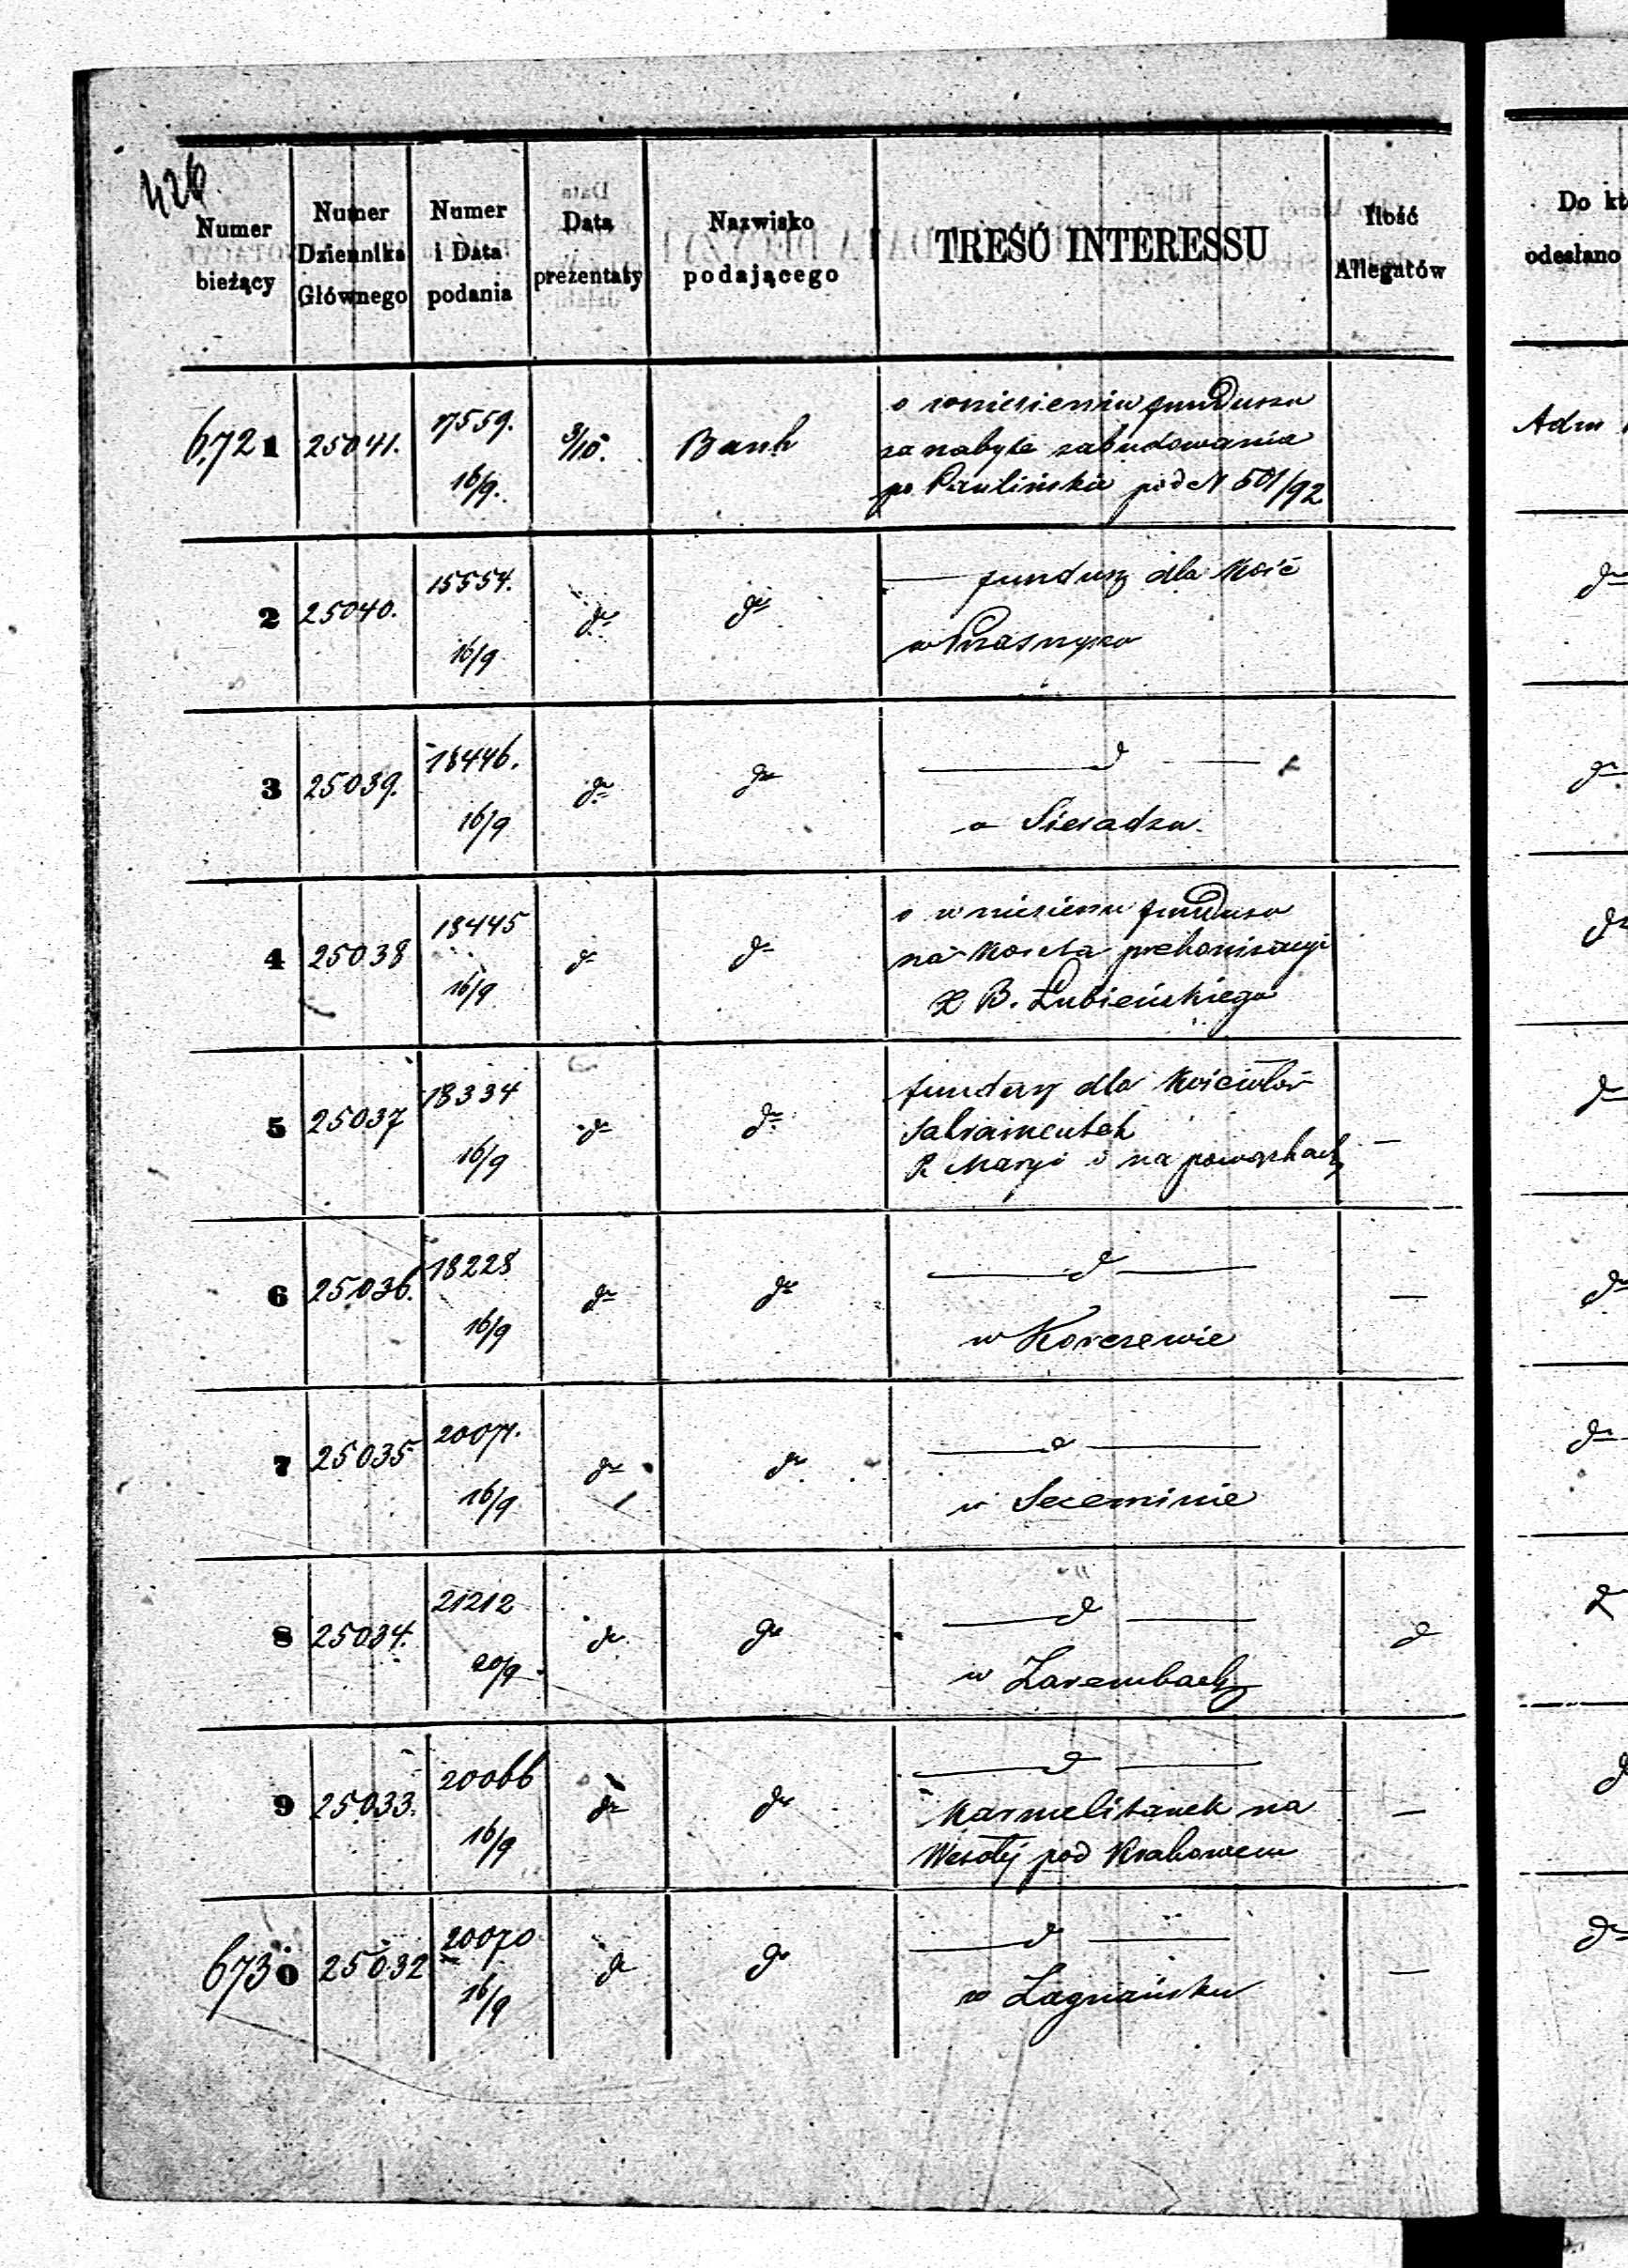 426
Numer bieżący
Numer Dziennika Głównego
Numer i Data podania
Data prezentaty
Nazwisko podającego
TREŚĆ INTERESSU
Ilość Allegatów
Do kt
odesłano
6721 25041. 17559. 16/9. 3/10. Bank
o wniesieniu funduszu
za nabyte zabudowania
po Paulińskie pod N 501/92
Adm
2 25040. 15554. 16/9 dto dto
— fundusz dla Kość
w Przasnyszu
dto
3 25039. 18446. 16/9 dto dto
— d —
w Sieradzu.
dto
4 25038 18445 16/9 dto dto
o wniesieniu funduszu
na koszta prekonizacyi
X B. Łubieńskiego
dto
5 25037 18334 16/9 dto dto
fundusz dla Kościołów
Sakramentek
P. Maryi i na powązkach —
dto
6 25036. 18228 16/9 dto dto
— d —
w Korczewie —
dto
7 25035 20071. 16/9 dto dto
— d —
w Seceminie
dto
8 25034. 21212 20/9 dto dto
— d — d
w Zarembach
d
9 25033. 20066 16/9 dto dto
— d —
Karmelitanek na —
Wesołej pod Krakowem
d
6730 25032 20070 16/9 dto dto
— d —
w Zagnańsku —
dto